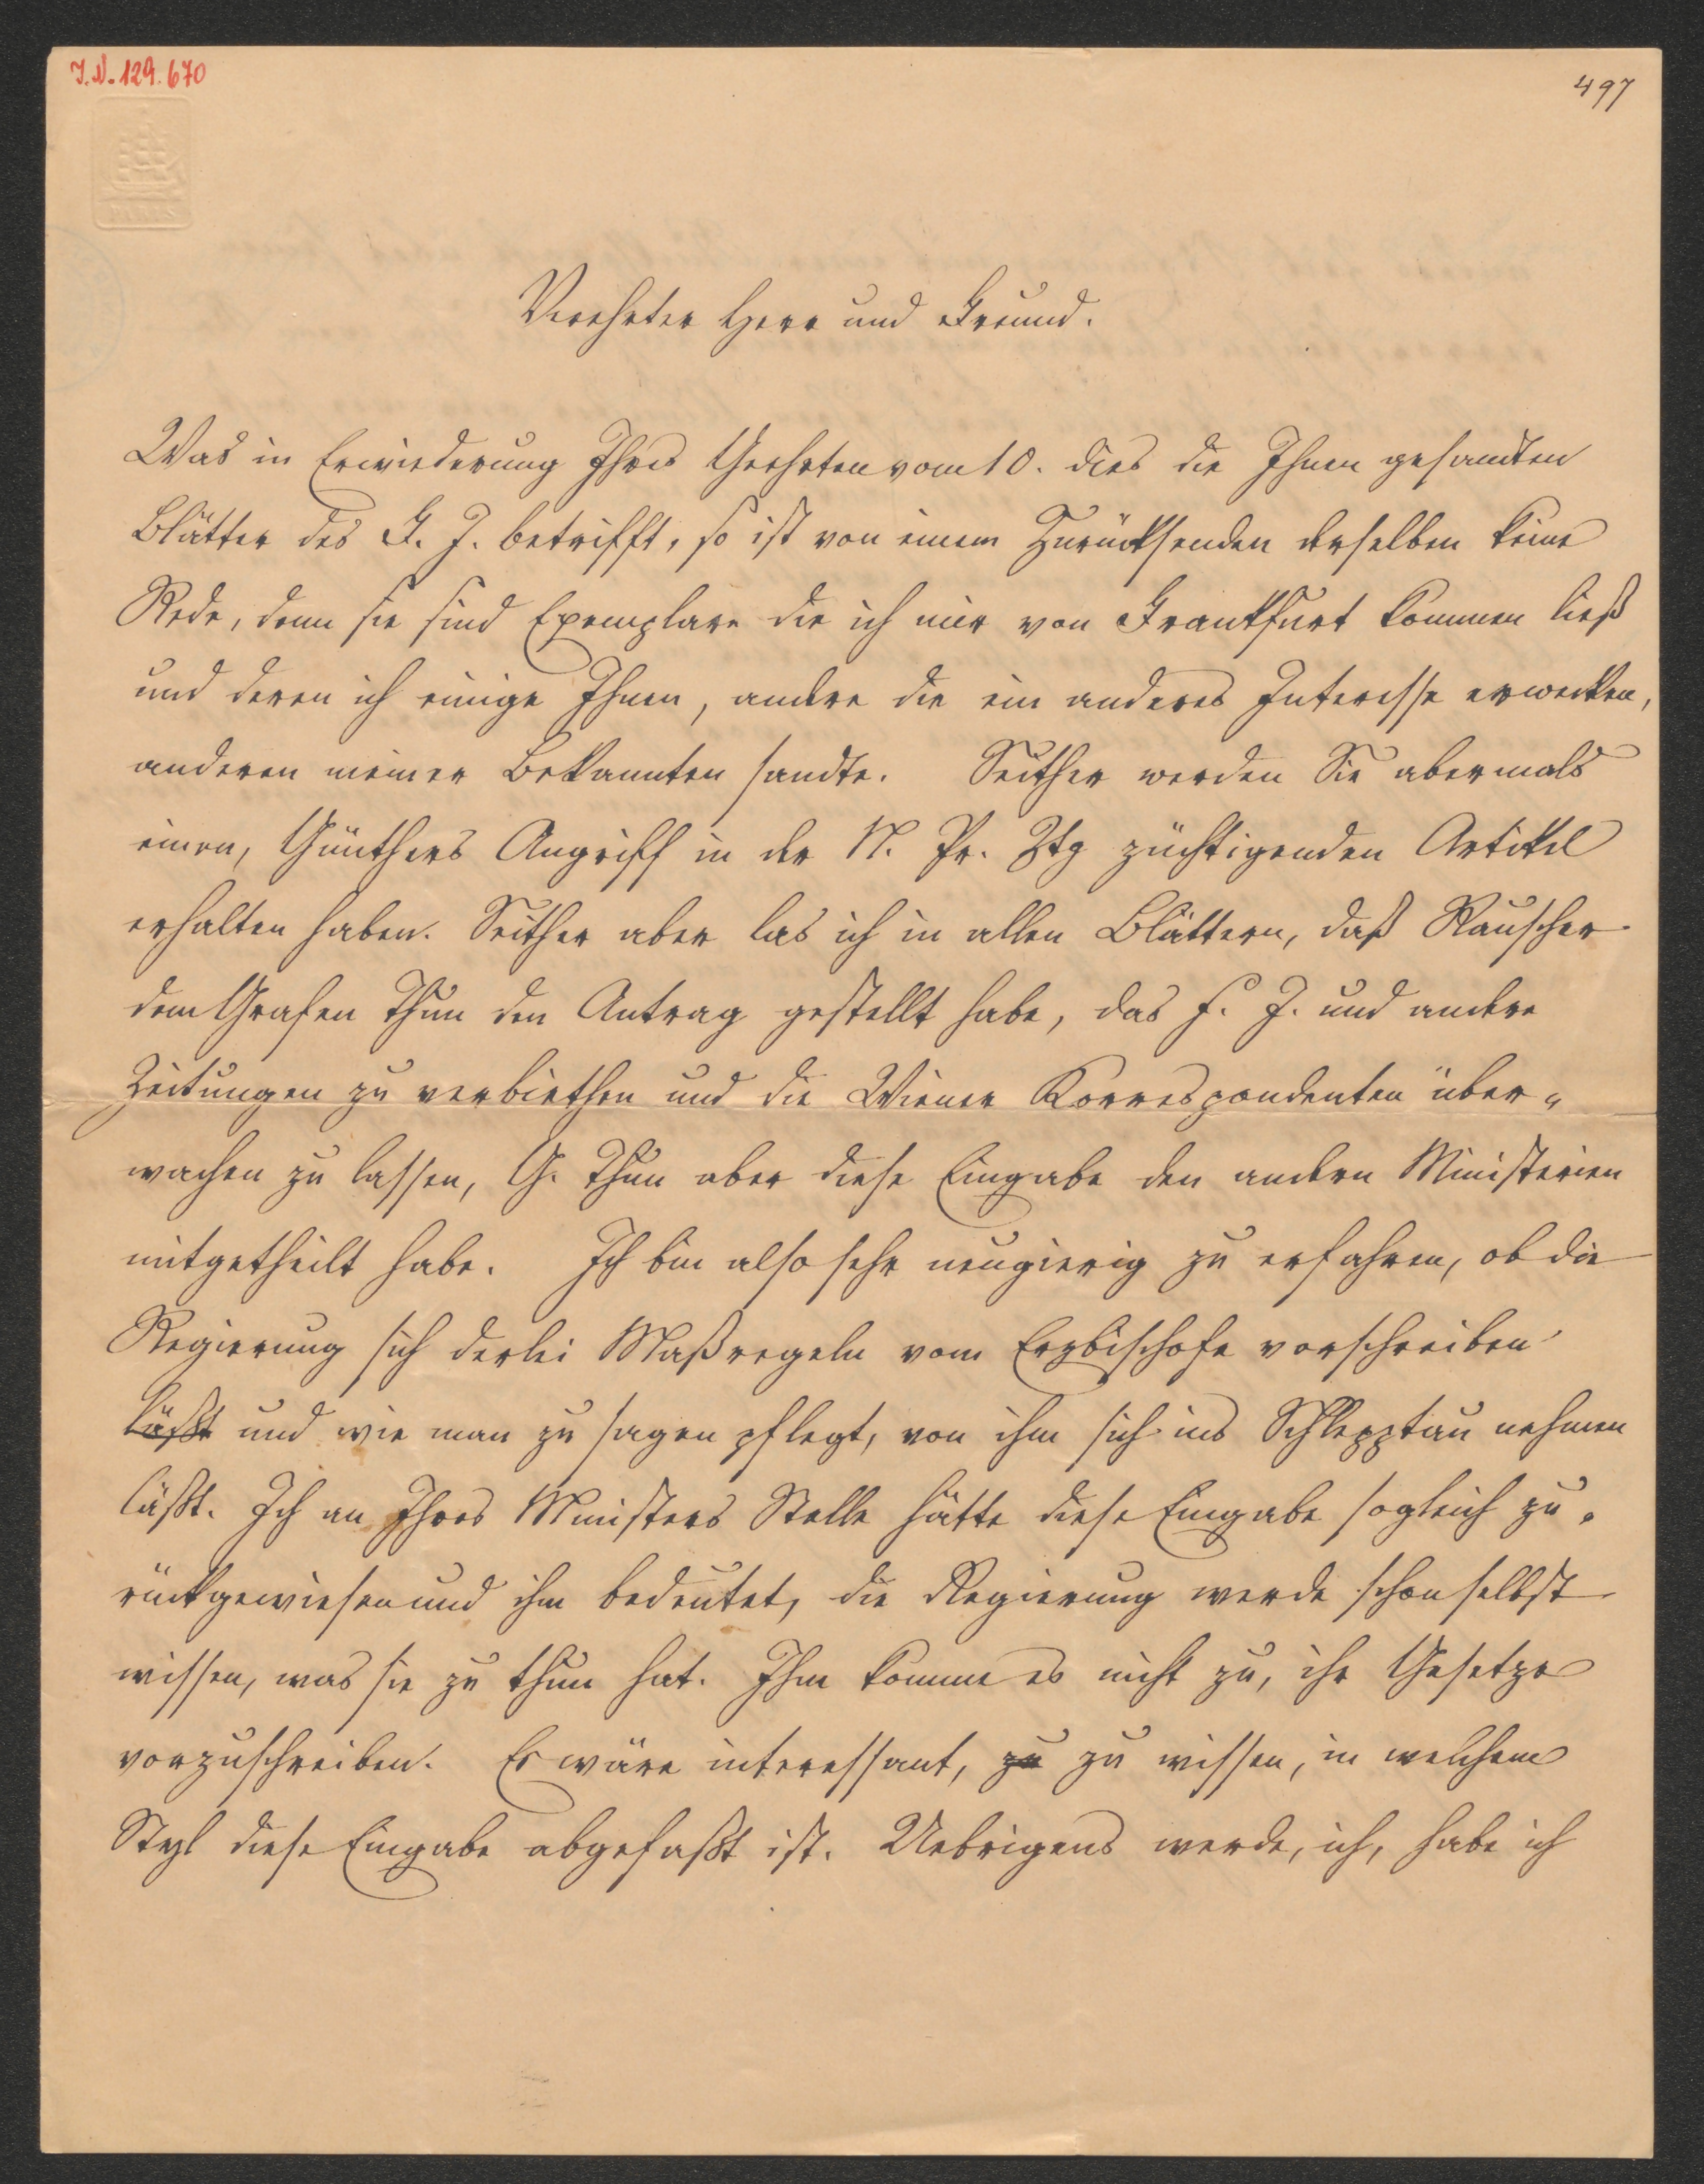 I.N. 129.670
497
Verehrter Herr und Freund.
Was in Erwiederung Ihres Geehrten vom 10. dies die Ihnen gesandten
Blätter des F. J. betrifft, so ist von einem Zurücksenden derselben keine
Rede, denn sie sind Exemplare die ich mir von Frankfurt kommen ließ
und deren ich einige Ihnen, andre die ein anderes Interesse erwecken,
anderen meiner Bekannten sandte. Seither werden Sie abermals
einen, Günthers Angriff in der N. Pr. Ztg züchtigenden Artikel
erhalten haben. Seither aber las ich in allen Blättern, daß Rauscher
dem Grafen Thun den Antrag gestellt habe, das F. J. und andere
Zeitungen zu verbiethen und die Wiener Korrespondenten über-
wachen zu lassen, G. Thun aber diese Eingabe den andern Ministerien
mitgetheilt habe. Ich bin also sehr neugierig zu erfahren, ob die
Regierung sich derlei Maßregeln vom Erzbischofe vorschreiben
läßt und wie man zu sagen pflegt, von ihm sich ins Schlepptau nehmen
läßt. Ich an Ihres Ministers Stelle hätte diese Eingabe sogleich zu-
rückgewiesen und ihm bedeutet, die Regierung werde schon selbst
wissen, was sie zu thun hat. Ihm komme es nicht zu, ihr Gesetze
vorzuschreiben. Es wäre interessant, zu zu wissen, in welchem
Styl diese Eingabe abgefaßt ist. Uebrigens werde, ich, habe ich